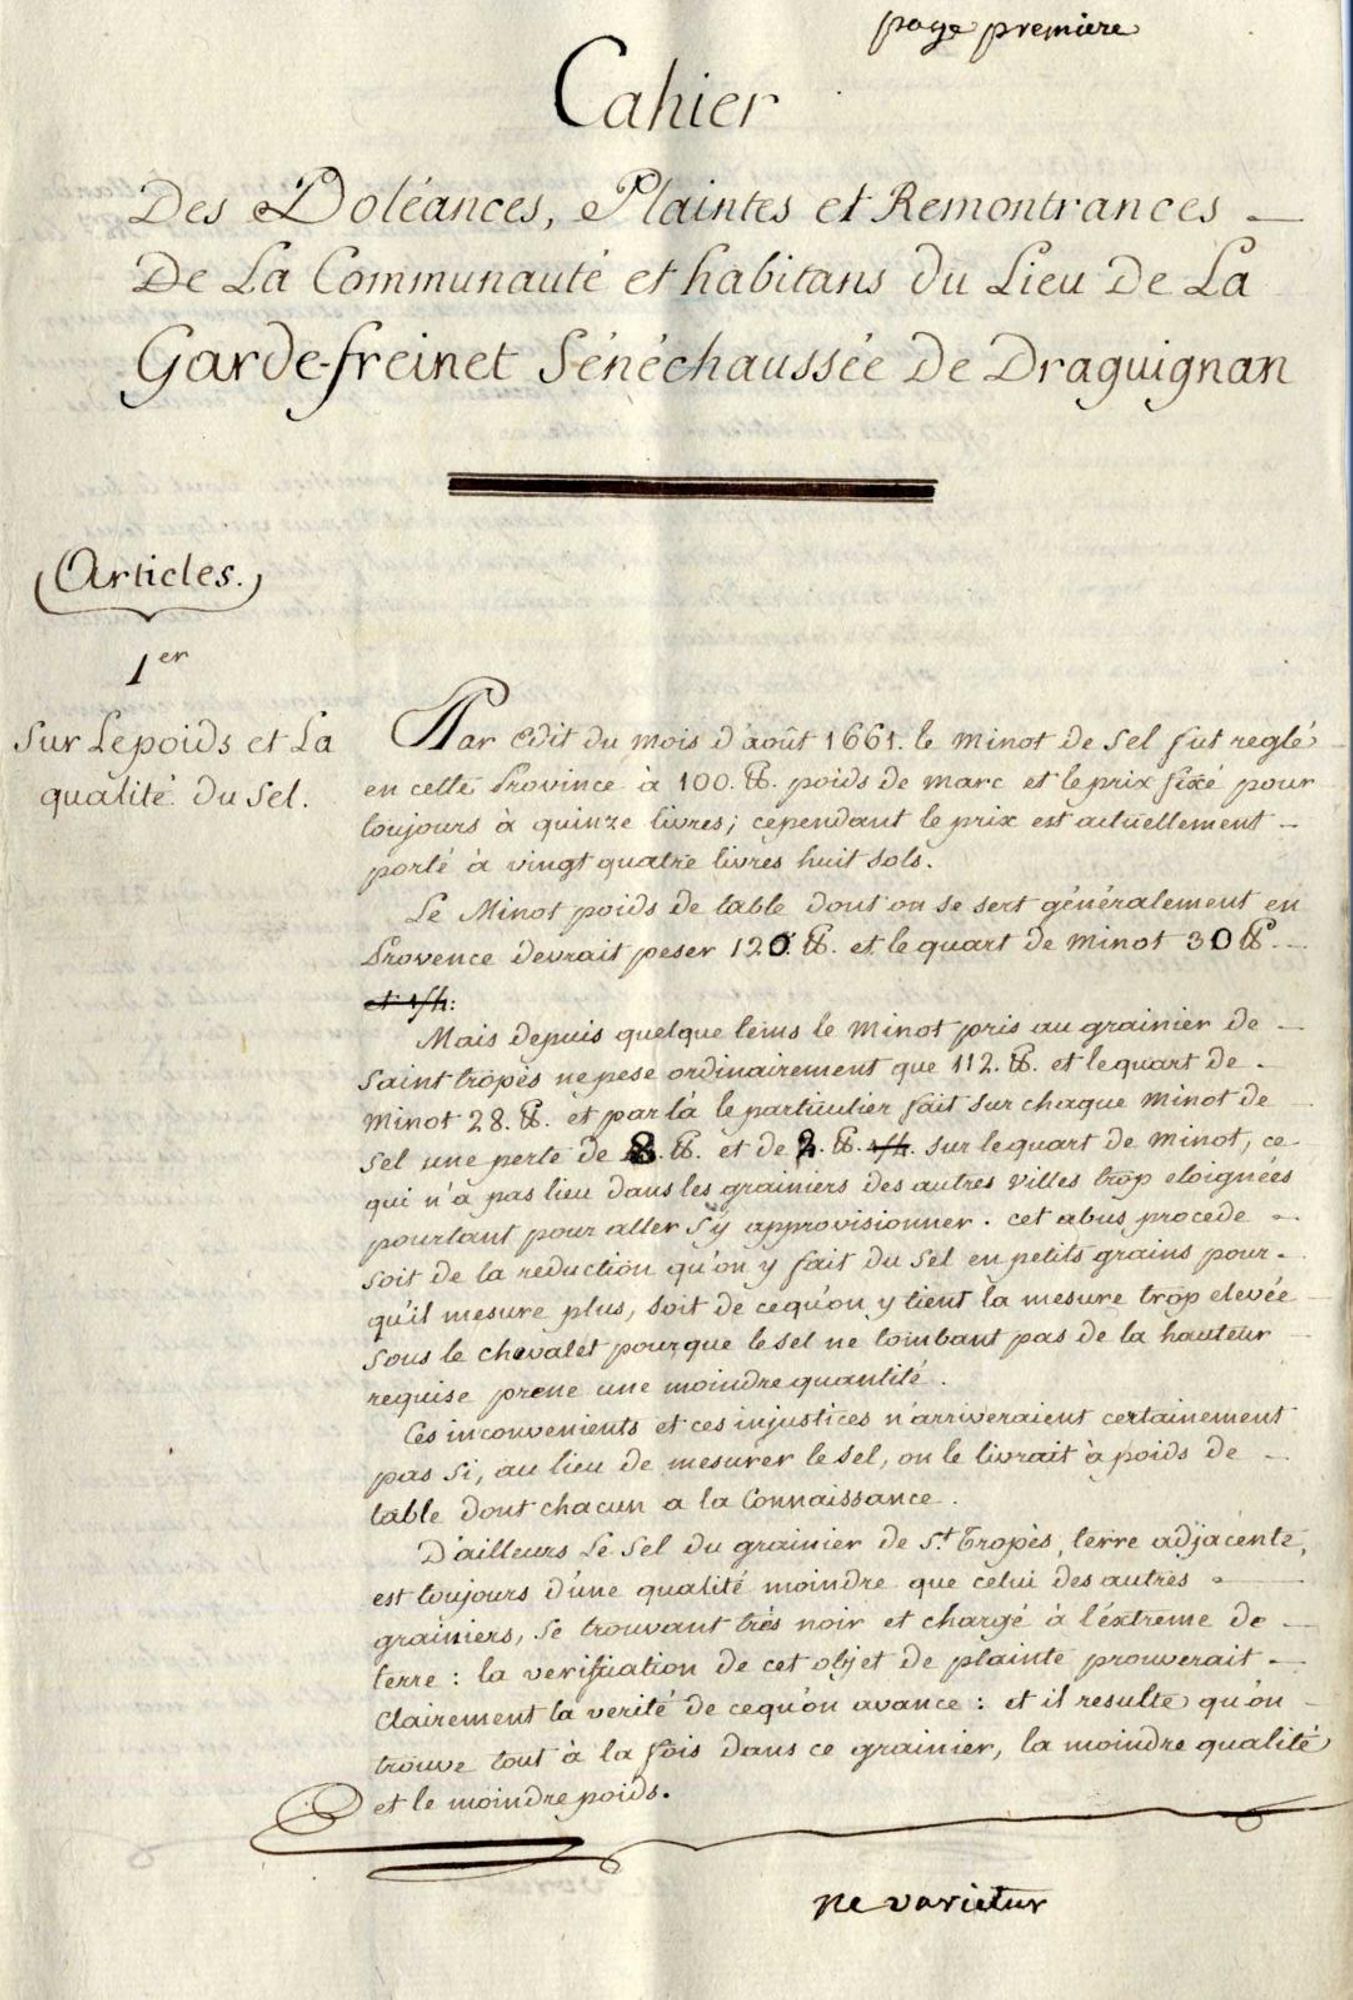 page premiere
Cahier
Des Doléances, Plaintes et Remontrances
De La Communauté et habitans du Lieu De La
Garde-freinet Sénéchaussée De Draguignan
Articles.
1er
Sur Lepoids et La
qualité du Sel.
Par Edit du mois d'août 1661. le Minot de Sel fut reglé
en cette Province à 100. ℔. poids de marc et le prix fixé pour
toujours à quinze livres; cependant le prix est actuellement
porté à vingt quatre livres huit sols.
Le Minot poids de table dont on se sert généralement en
Provence devrait peser 120. ℔. et le quart de Minot 30 ℔.
Mais depuis quelque tems le Minot pris au grainier de
Saint tropès ne pese ordinairement que 112. ℔. et le quart de
Minot 28. ℔. et par là le particulier fait sur chaque Minot de
sel une perte de 8. ℔. et de 2. ℔. sur le quart de Minot, ce
qui n'a pas lieu dans les grainiers des autres villes trop eloignées
pourtant pour aller s'y approvisionner. cet abus procede
soit de la reduction qu'on y fait du Sel en petits grains pour
qu'il mesure plus, soit de cequ'on y tient la mesure trop elevée
sous le chevalet pour que le sel ne tombant pas de la hauteur
requise prene une moindre quantité.
Ces inconvenients et ces injustices n'arriveraient certainement
pas si, au lieu de mesurer le sel, on le livrait à poids de
table dont chacun a la Connaissance.
D'ailleurs Le Sel du grainier de St. Tropès, terre adjacente,
est toujours d'une qualité moindre que celui des autres
grainiers, se trouvant très noir et chargé à l'éxtreme de
terre : la verification de cet objet de plainte prouverait
Clairement la verité de cequ'on avance : et il resulte qu'on
trouve tout à la fois dans ce grainier, la moindre qualité
et le moindre poids.
ne varietur